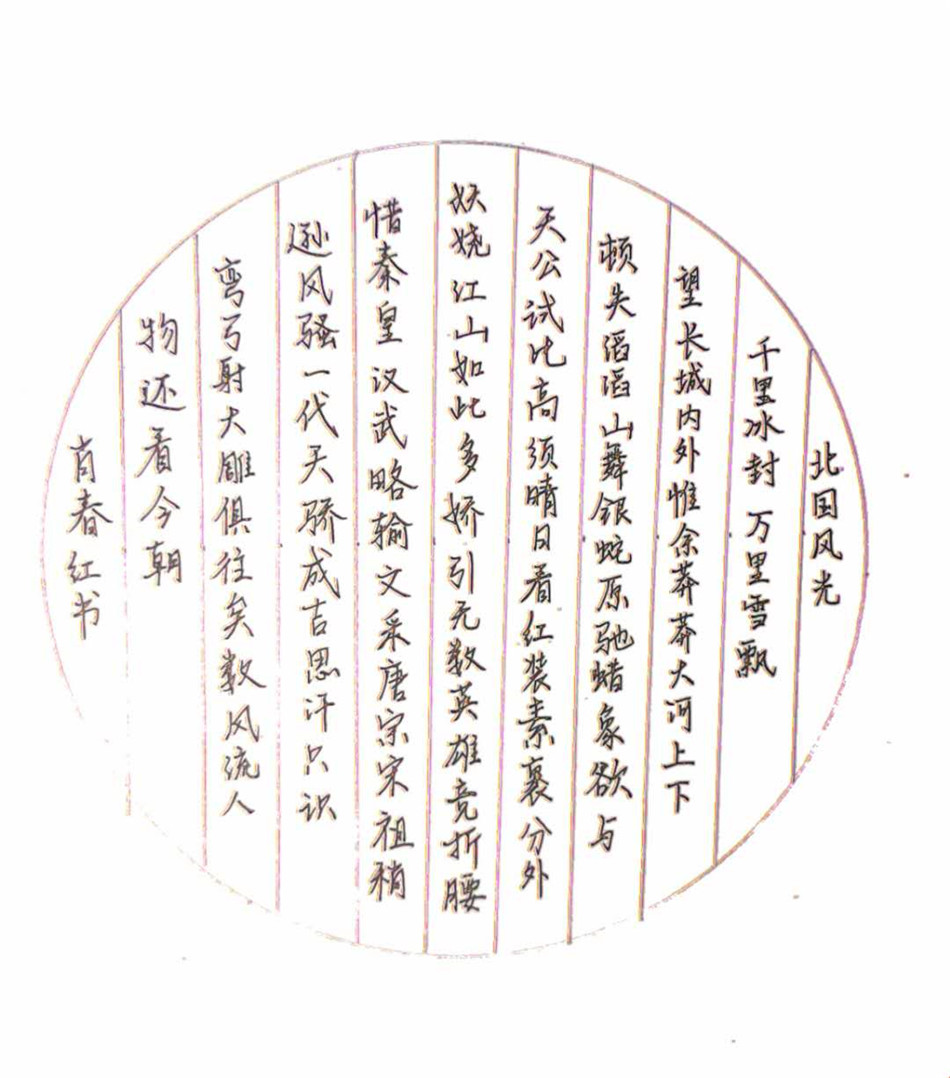 北国风光
千里冰封万里雪飘
望长城内外惟余莽莽大河上下
顿失滔滔山舞银蛇原驰蜡象欲与
天公试比高须晴日看红装素裹分外
妖娆江山如此多娇引无数英雄竞折腰
惜秦皇汉武略输文采唐宗宋祖稍
逊风骚一代天骄成吉思汗只识
弯弓射大雕俱往矣数风流人
物还看今朝
肖春红书